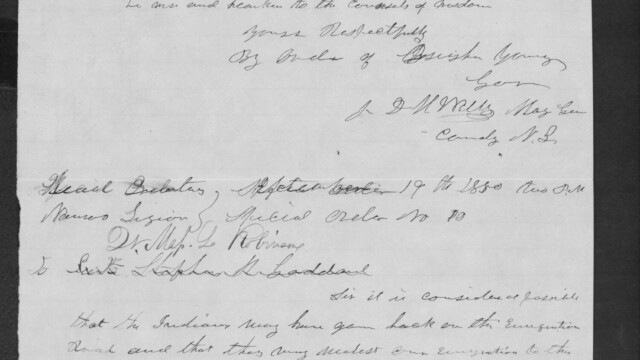 to me and hearken to the Counsels of wisdom
Yours Respectfully
By order of Brigham Young
Gov
D H Wells Maj Gen
Comdg N. L.
Head Quarters September 19th 1850 two P.M
Nauvoo Legion Special Order No 10
Robinson
To Stephen
Sir it is considered possible
that the Indians may have gone back on the Emigration
Road and that they may molest our Emigration to the